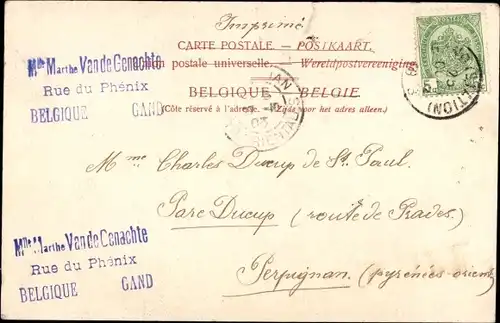 Imprimé
CARTE POSTALE. – POSTKAART.
Union postale universelle. – Wereldpostvereeniging
BELGIQUE – BELGIE.
(Côté réservé à l'adresse. – Zijde voor het adres alleen.)
Mlle Marthe Van de Genachte
Rue du Phénix
BELGIQUE GAND
Mme Charles Ducup de St Paul.
Parc Ducup (route de Prades)
Perpignan. (pyrénées-orient
Mlle Marthe Van de Genachte
Rue du Phénix
BELGIQUE GAND